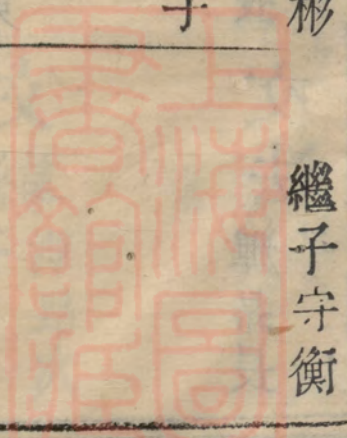 彬
繼子守衡
子
上海圖
書館藏